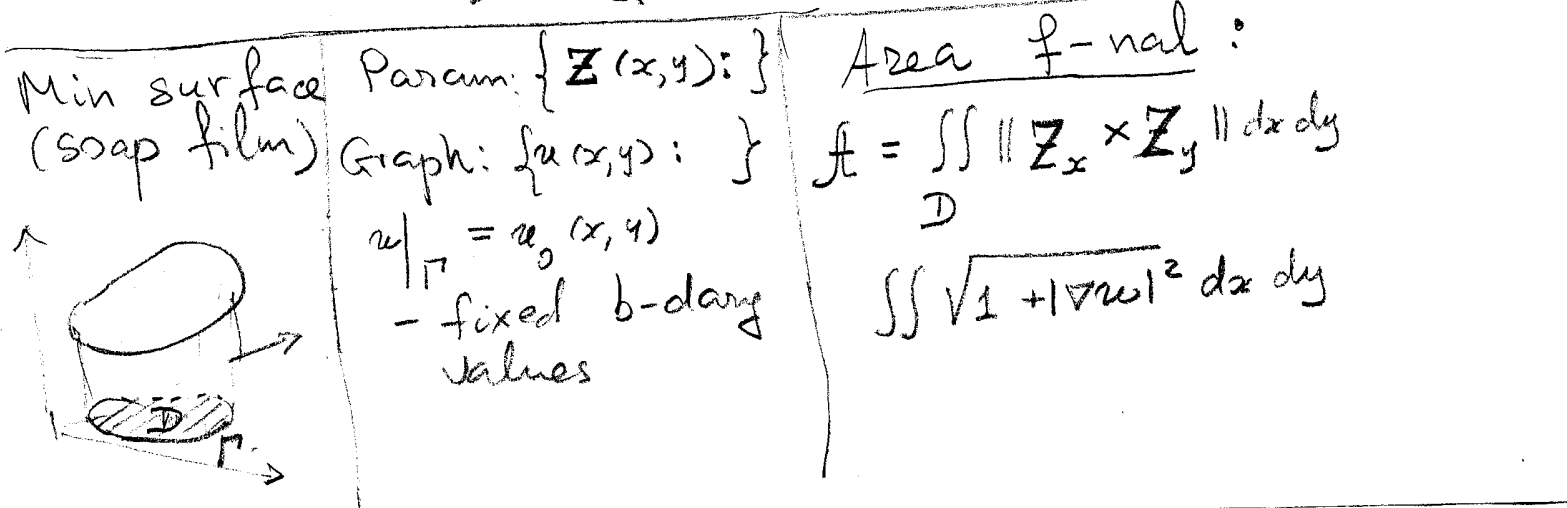 Min surface
(soap film)
D
Γ
Param: { Z(x,y): }
Graph: {u(x,y): }
u|_Γ = u_0 (x,y)
- fixed b-dary
values
Area f-nal:
A = ∬_D || Z_x × Z_y || dx dy
∬ √(1 + |∇u|²) dx dy